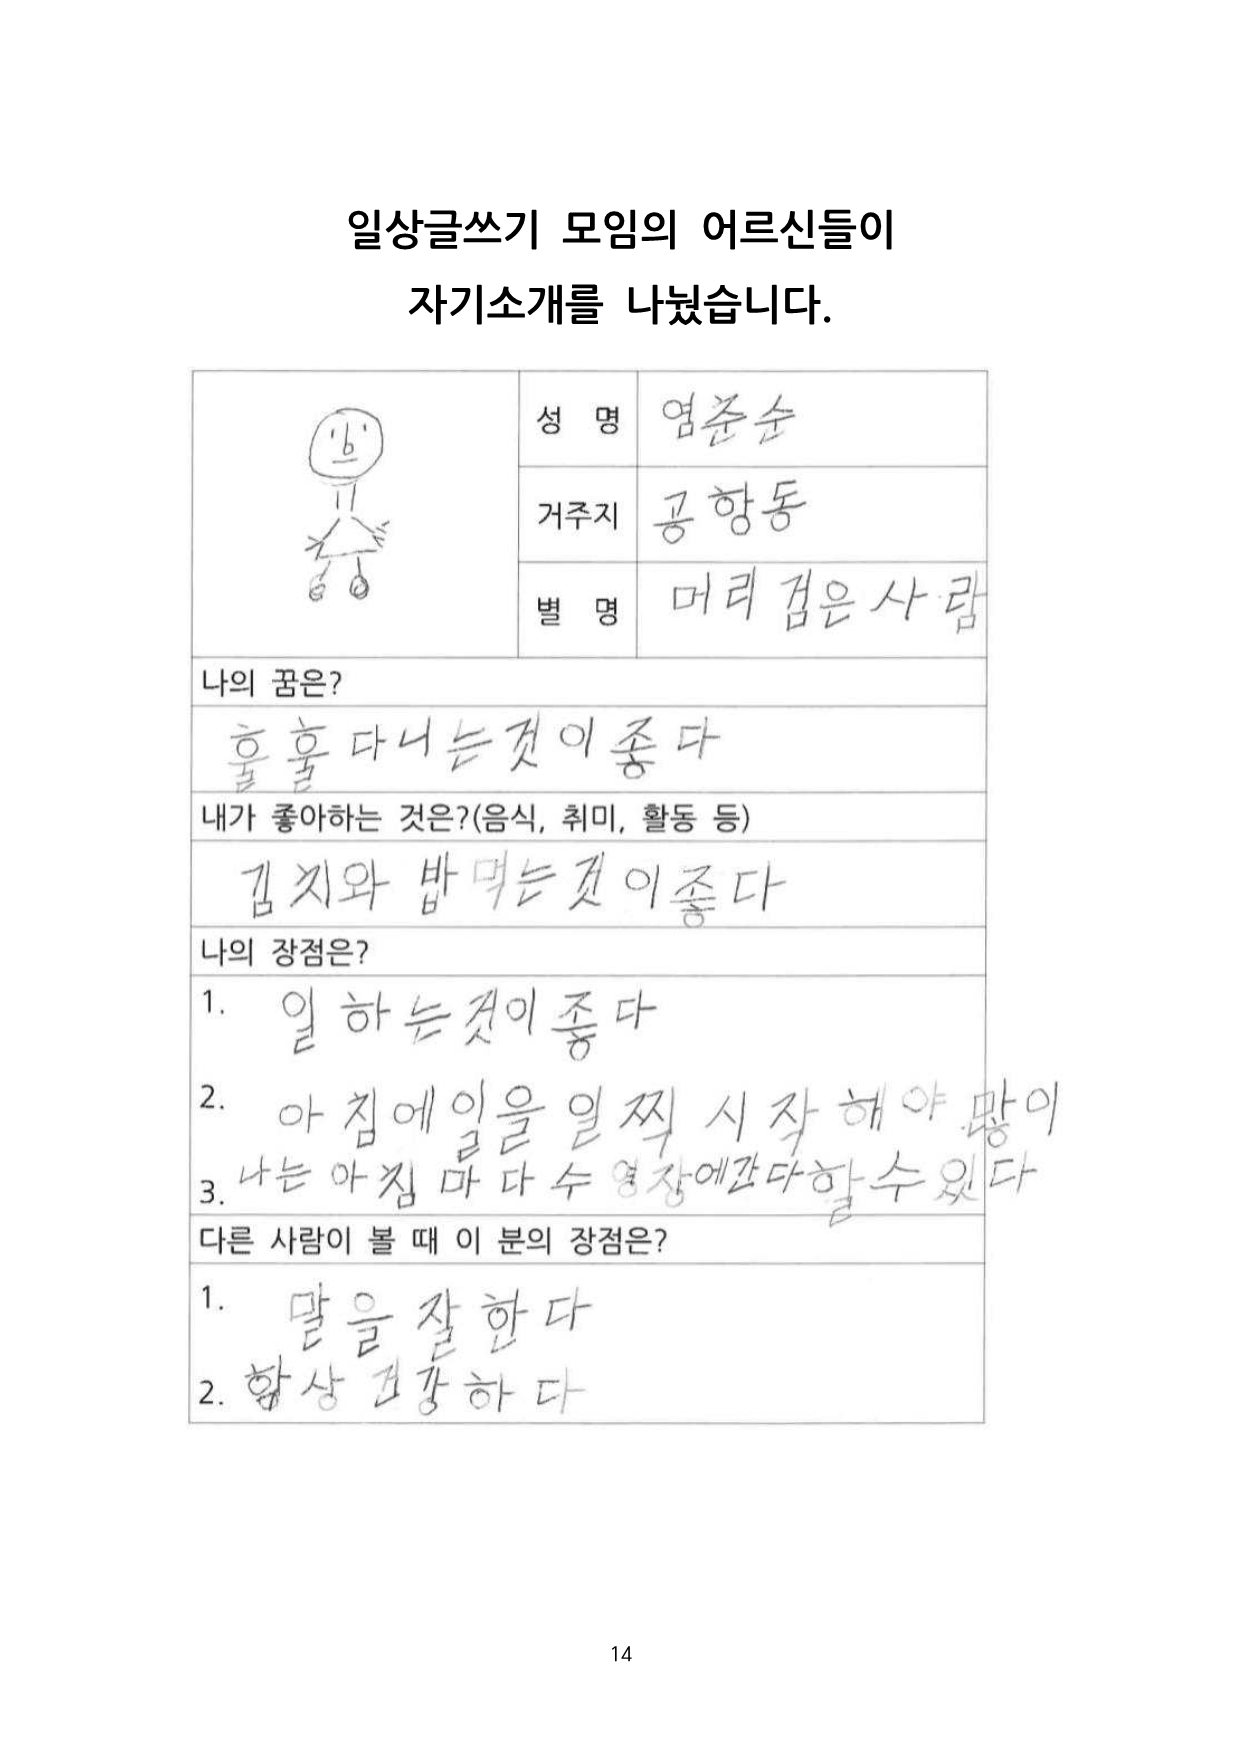 일상글쓰기 모임의 어르신들이
자기소개를 나눴습니다.
성 명 염준순
거주지 공항동
별 명 머리 검은 사람
나의 꿈은?
훌훌 다니는것이 좋다
내가 좋아하는 것은?(음식, 취미, 활동 등)
김치와 밥 먹는것이 좋다
나의 장점은?
1. 일 하는것이 좋다
2. 아침에 일을 일찍 시작 해야 많이
할 수 있다
3. 나는 아침 마다 수영장에간다
다른 사람이 볼 때 이 분의 장점은?
1. 말을 잘 한다
2. 항상 건강하다
14